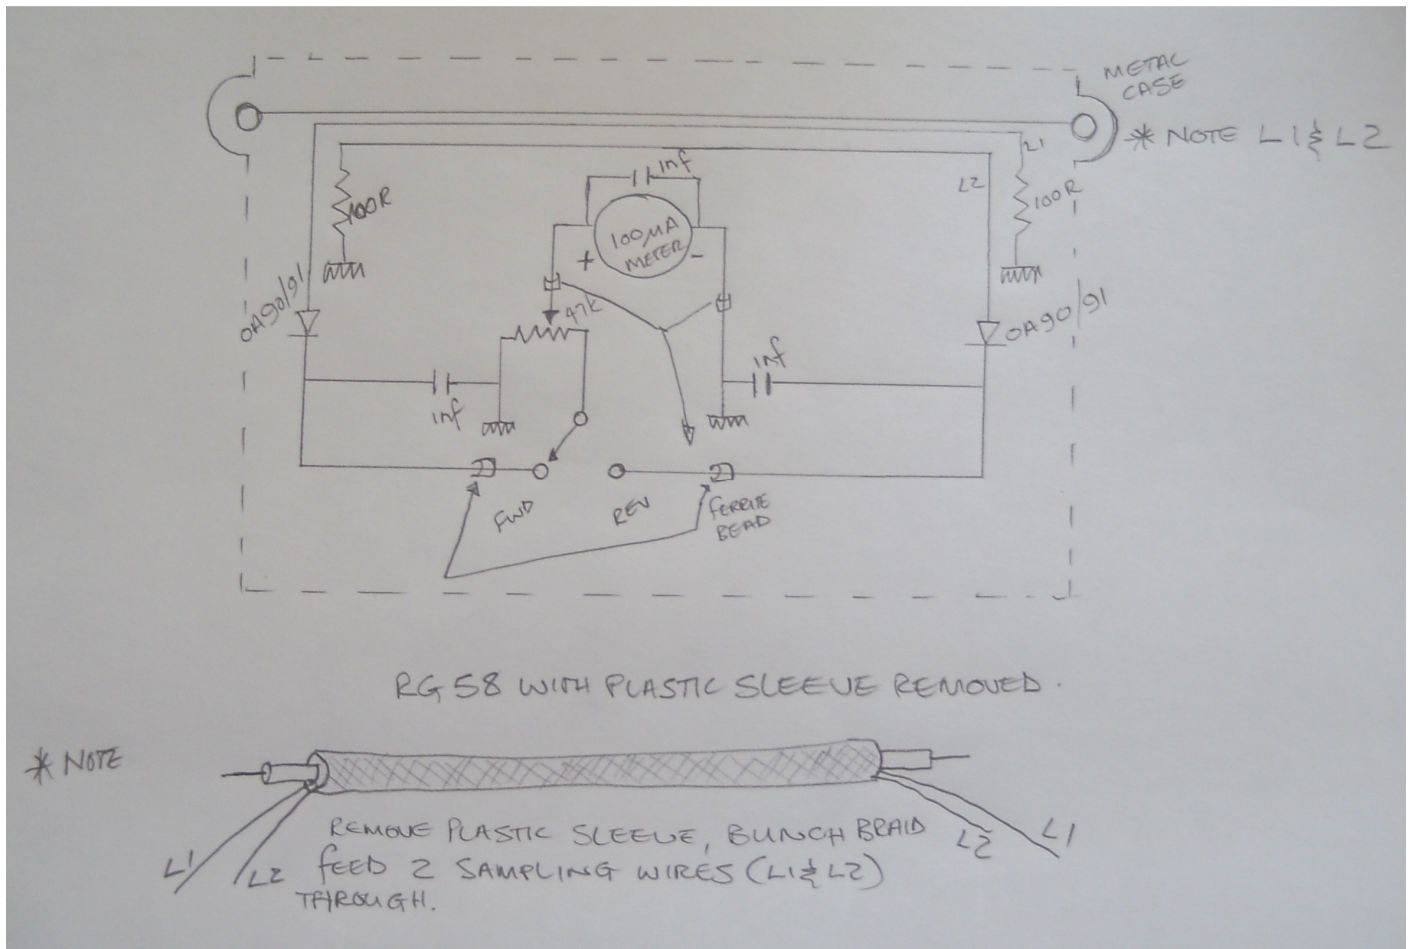 METAL
CASE
* NOTE L1 & L2
1nf
L1
L2
100R
100R
100µA
METER
+
-
OA90/91
47K
OA90/91
1nf
1nf
FWD
REV
FERRITE
BEAD
RG58 WITH PLASTIC SLEEVE REMOVED.
* NOTE
REMOVE PLASTIC SLEEVE, BUNCH BRAID
FEED 2 SAMPLING WIRES (L1 & L2)
THROUGH.
L1
L2
L2
L1